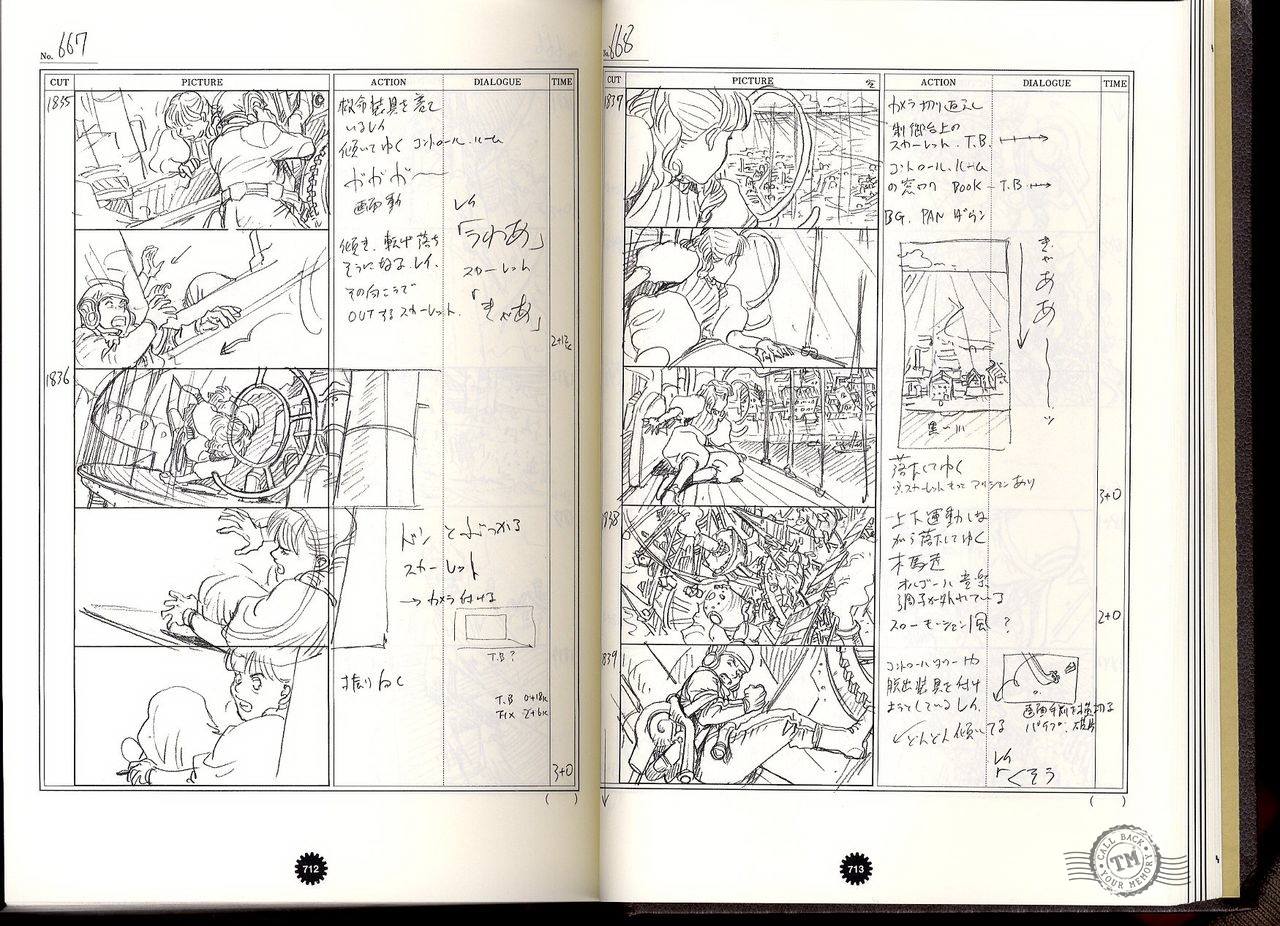 No. 667
CUT PICTURE ACTION DIALOGUE TIME
1835
救命装具を着て
いるレイ
傾いてゆく コントロール・ルーム
ガガガ〜
画面動
レイ
「うわあ」
傾き、転げ落ち
そうになるレイ.
その向こうで
OUTするスカーレット.
スカーレット
「きゃあ」
2+12k
1836
ドンとぶつかる
スカーレット
→カメラ付ける
T.B?
振り向く
T.B 0+18k
FIX 2+6k
3+0
( )
712
No. 668
CUT PICTURE ACTION DIALOGUE TIME
1837
カメラ切り返し
制御台上の
スカーレット. T.B.
コントロール・ルーム
の窓ワク BOOK-T.B
BG. PAN ダウン
きゃああ———ッ
落下してゆく
3+0
1838
上下運動しな
がら落下してゆく
木馬達
オルゴール音楽
調子が外れている
スローモーション風 ?
2+0
1839
コントロールタワーや
脱出装具を付け
ようとしているレイ.
どんどん傾いてる
レイ
「くそう
( )
713
CALL BACK
TM
YOUR MEMORY